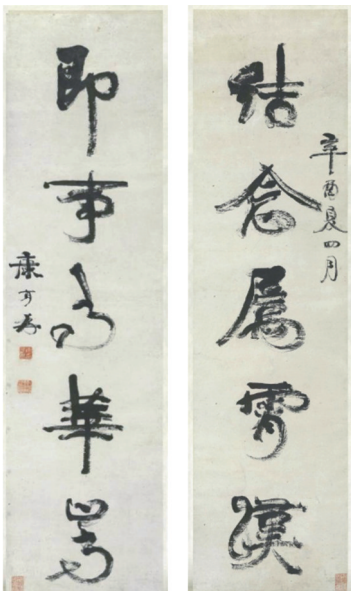 結念屬霄漢
辛酉夏四月
即事高華嵩
康有為